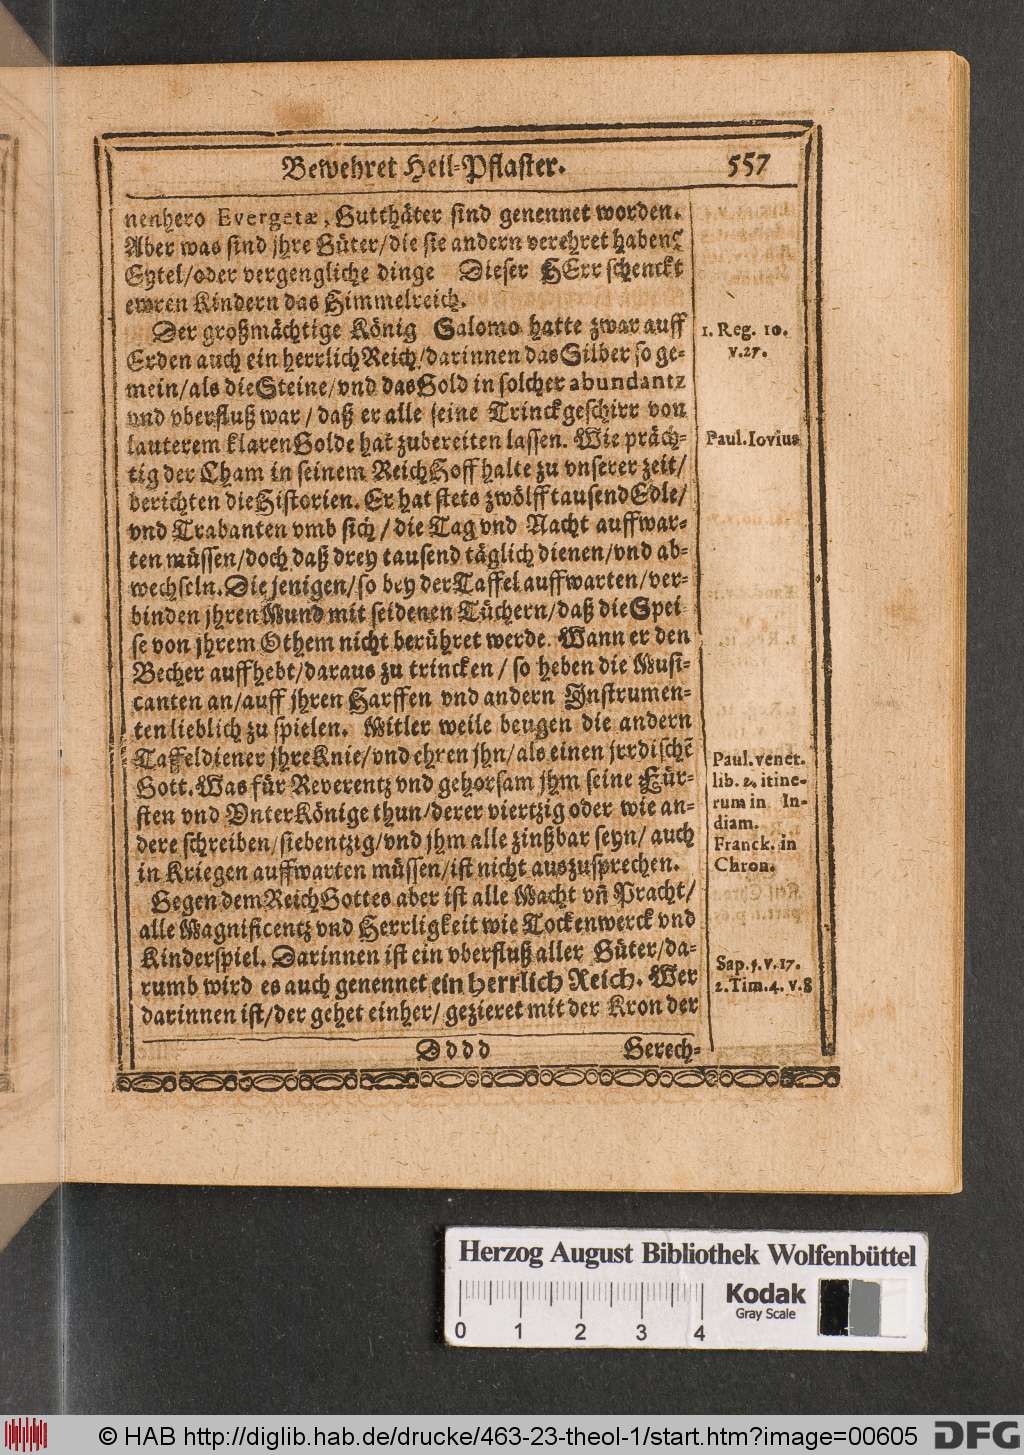 Bewehret Heil-Pflaster. 557
nenhero Evergetæ, Gutthäter sind genennet worden.
Aber was sind jhre Güter/die sie andern verehret haben?
Eytel/oder vergengliche dinge Dieser HErr schenckt
ewren Kindern das Himmelreich.
Der großmächtige König Salomo hatte zwar auff
Erden auch ein herrlich Reich/darinnen das Silber so ge-
mein/als die Steine/vnd das Gold in solcher abundantz
und vberfluß war/daß er alle seine Trinckgeschirr von
lauterem klaren Golde hat zubereiten lassen. Wie präch-
tig der Cham in seinem Reich Hoff halte zu vnserer zeit/
berichten die Historien. Er hat stets zwölff tausend Edle/
vnd Trabanten vmb sich/die Tag vnd Nacht auffwar-
ten müssen/doch daß drey tausend täglich dienen/vnd ab-
wechseln. Die jenigen/so bey der Taffel auffwarten/ver-
binden jhren Mund mit seidenen Tüchern/daß die Spei
se von jhrem Othem nicht berühret werde. Wann er den
Becher auffhebt/daraus zu trincken/so heben die Musi-
canten an/auff jhren Harffen vnd andern Instrumen-
ten lieblich zu spielen. Mitler weile beugen die andern
Taffeldiener jhre Knie/vnd ehren jhn/als einen jrrdischē
Gott. Was für Reverentz vnd gehorsam jhm seine Für-
sten vnd VnterKönige thun/derer viertzig oder wie an-
dere schreiben/siebentzig/vnd jhm alle zinßbar seyn/auch
in Kriegen auffwarten müssen/ist nicht auszusprechen.
Gegen dem Reich Gottes aber ist alle Macht vñ Pracht/
alle Magnificentz vnd Herrligkeit wie Tockenwerck vnd
Kinderspiel. Darinnen ist ein vberfluß aller Güter/da-
rumb wird es auch genennet ein herrlich Reich. Wer
darinnen ist/der gehet einher/gezieret mit der Kron der
Dddd Gerech-
1. Reg. 10.
v.27.
Paul. Iovius
Paul. venet.
lib. 2. itine-
rum in In-
diam.
Franck. in
Chron.
Sap. 5. v. 17.
2. Tim. 4. v. 8
Herzog August Bibliothek Wolfenbüttel
Kodak
Gray Scale
0 1 2 3 4
© HAB http://diglib.hab.de/drucke/463-23-theol-1/start.htm?image=00605
DFG